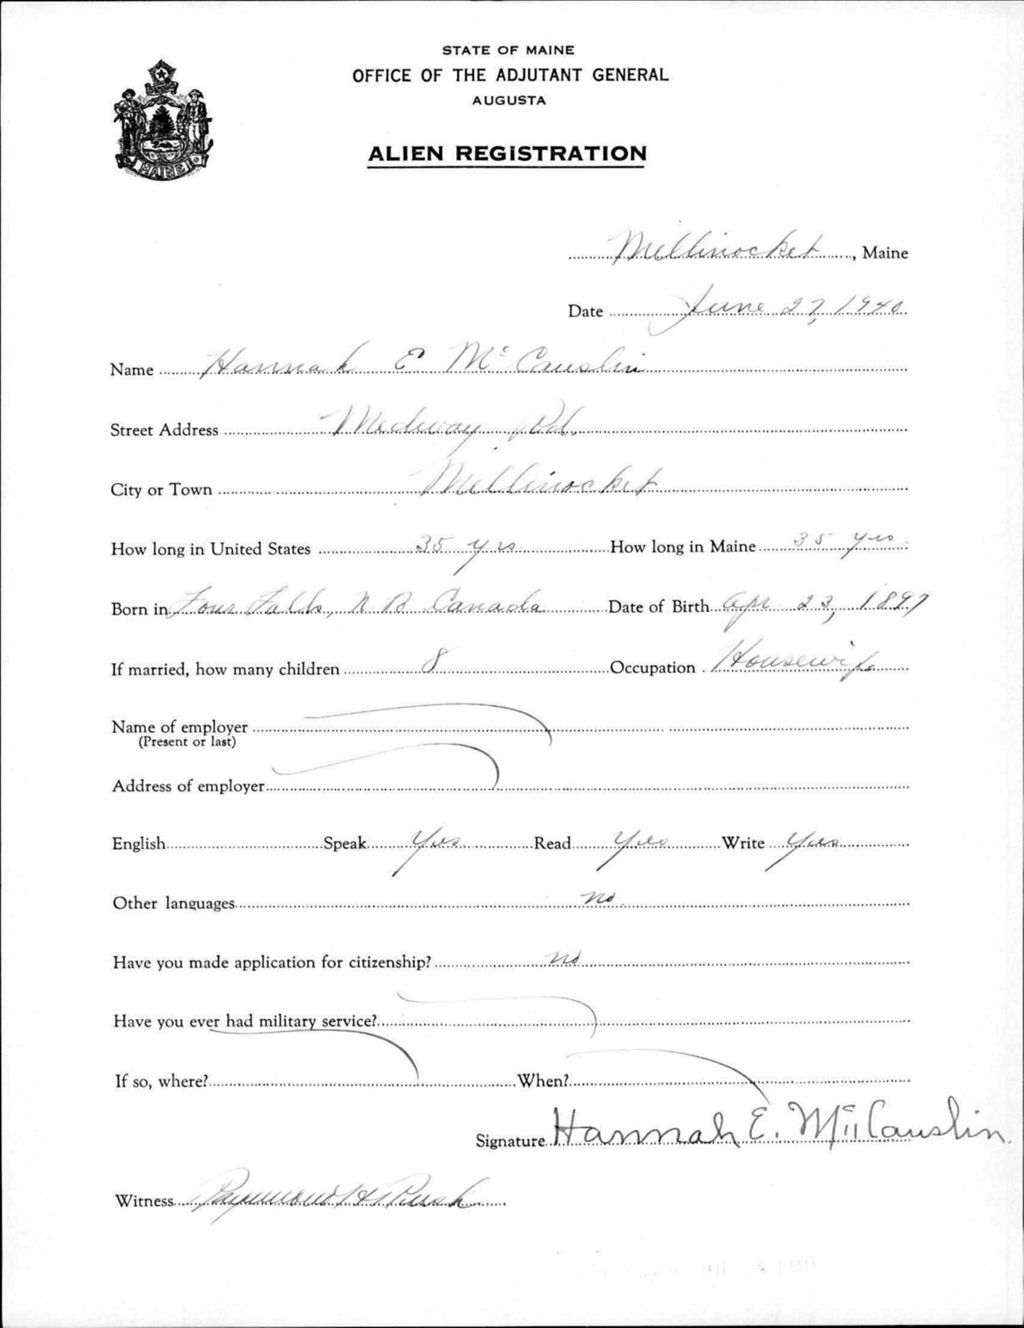 STATE OF MAINE
OFFICE OF THE ADJUTANT GENERAL
AUGUSTA
ALIEN REGISTRATION
MAINE
Millinocket, Maine
Date June 27, 1940
Name Hannah E McCauslin
Street Address Medway Rd.
City or Town Millinocket
How long in United States 35 yrs How long in Maine 35 yrs
Born in Four Falls, N B Canada Date of Birth Apr 23, 1897
If married, how many children 8 Occupation Housewife
Name of employer
(Present or last)
Address of employer
English Speak Yes Read Yes Write Yes
Other languages no
Have you made application for citizenship? no
Have you ever had military service?
If so, where? When?
Signature Hannah E. McCauslin
Witness Raymond H Rush